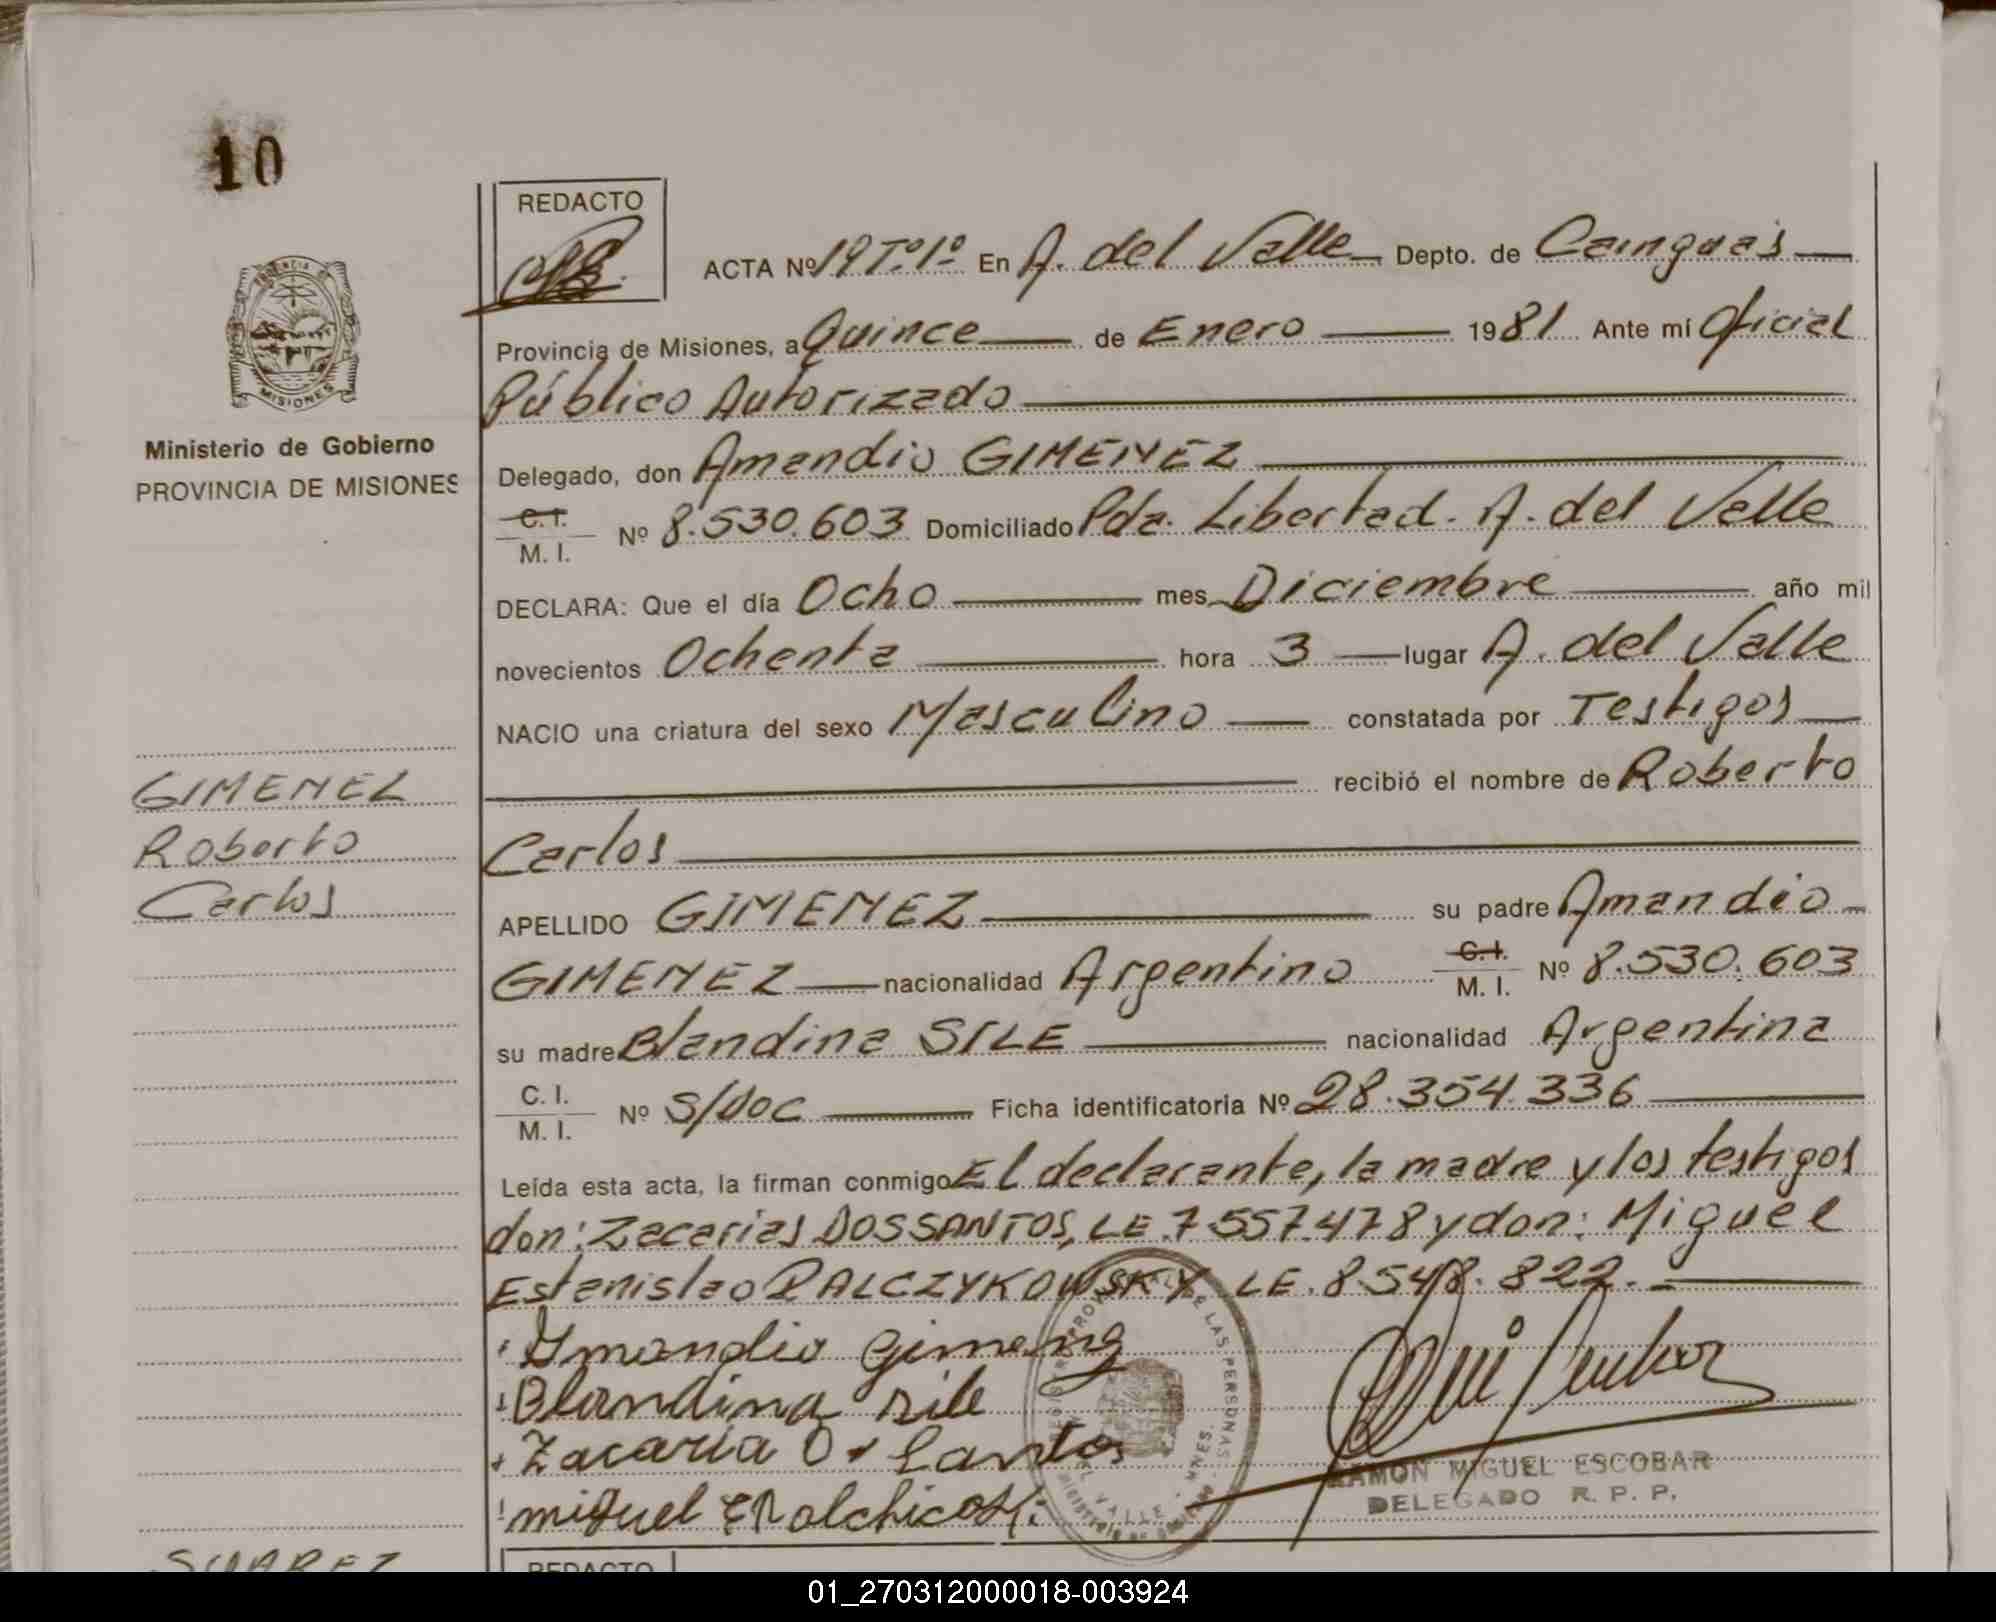 10
REDACTO
ACTA Nº 19 Tº 1º En A. del Valle Depto. de Cainguás
Provincia de Misiones, a Quince de Enero 1981 Ante mí Oficial
Público Autorizado
PROVINCIA DE
MISIONES
Ministerio de Gobierno
PROVINCIA DE MISIONES
Delegado, don Amandio GIMENEZ
C. I.
M. I. Nº 8.530.603 Domiciliado Pda. Libertad. A. del Valle
DECLARA: Que el día Ocho mes Diciembre año mil
novecientos Ochenta hora 3 lugar A. del Valle
NACIO una criatura del sexo Masculino constatada por Testigos
recibió el nombre de Roberto
Carlos
GIMENEZ
Roberto
Carlos
APELLIDO GIMENEZ su padre Amandio
GIMENEZ nacionalidad Argentino C. I. M. I. Nº 8.530.603
su madre Blandina SILE nacionalidad Argentina
C. I.
M. I. Nº S/DOC Ficha identificatoria Nº 28.354.336
Leída esta acta, la firman conmigo El declarante, la madre y los testigos
don: Zacarias DOSSANTOS, LE.7.557.478 y don: Miguel
Estanislao PALCZYKOWSKY, LE.8.548.822.
Amandio Gimenez
Blandina sile
Zacaria D Santos
miguel
DE LAS PERSONAS
DEL VALLE - MNES.
RAMON MIGUEL ESCOBAR
DELEGADO R. P. P.
SUAREZ
REDACTO
01_270312000018-003924